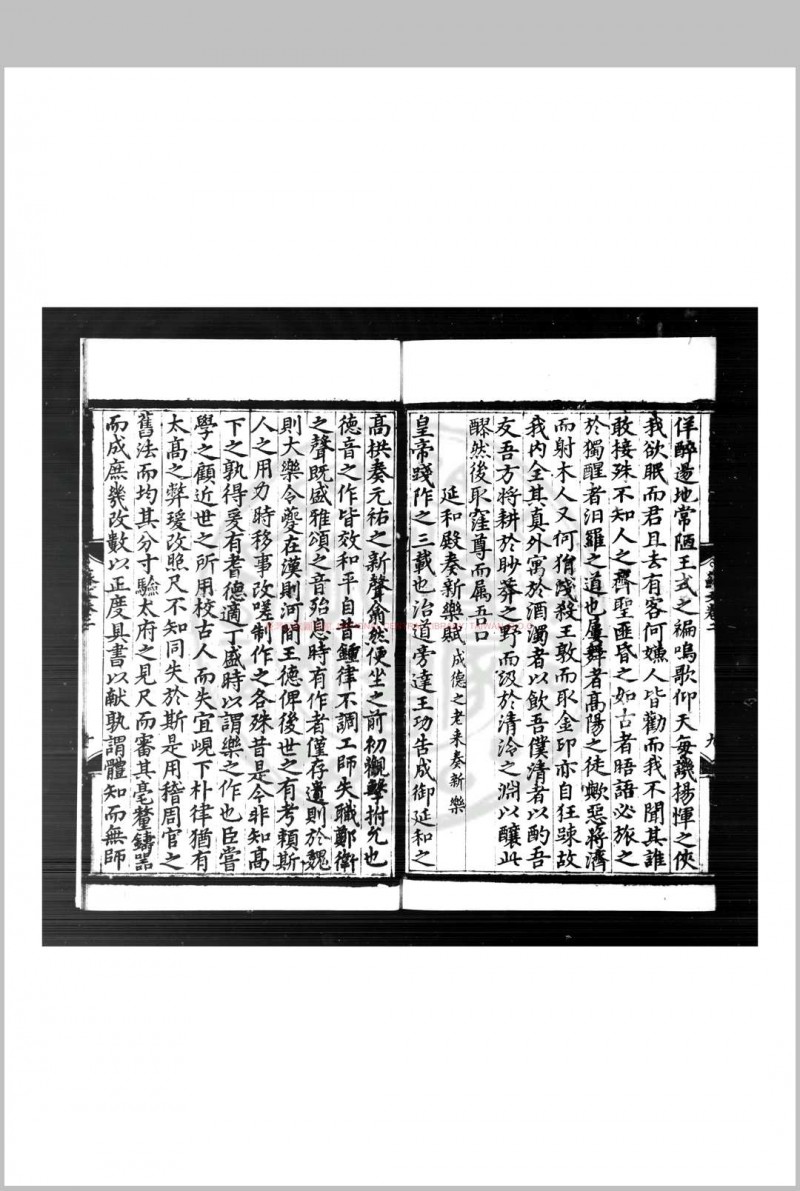 佯醉遏地常陋王式之褊嗚歌仰天每譏楊惲之俠
我欲眠而君且去有客何嫌人皆勸而我不聞其誰
敢接殊不知人之齊聖匪昏之如古者晤語必旅之
於獨醒者汨羅之道也屢舞者高陽之徒歟惡蔣濟
而射木人又何狷淺殺王敦而取金印亦自狂踈故
我內全其真外寓於酒濁者以飲吾僕清者以酌吾
友吾方將耕於眇莽之野而汲於清泠之淵以釀此
醪然後取窪尊而属吾口
延和殿奏新樂賦成德之老来奏新樂
皇帝踐阼之三載也治道旁達王功告成御延和之
高拱奏元祐之新聲翕然便坐之前初觀擊拊允也
德音之作皆效和平自昔鍾律不調工師失職鄭衛
之聲既盛雅頌之音殆息時有作者僅存遺則於魏
則大樂令夔在漢則河間王德俾後世之有考頼斯
人之用力時移事改嗟制作之各殊昔是今非知髙
下之孰得爰有耆德適丁盛時以謂樂之作也臣嘗
學之顧近世之所用校古人而失宜峴下朴律猶有
太髙之弊瑗改照尺不知同失於斯是用稽周官之
舊法而均其分寸驗太府之見尺而審其毫釐鑄器
而成庶幾改數以正度具書以献孰謂體知而無師